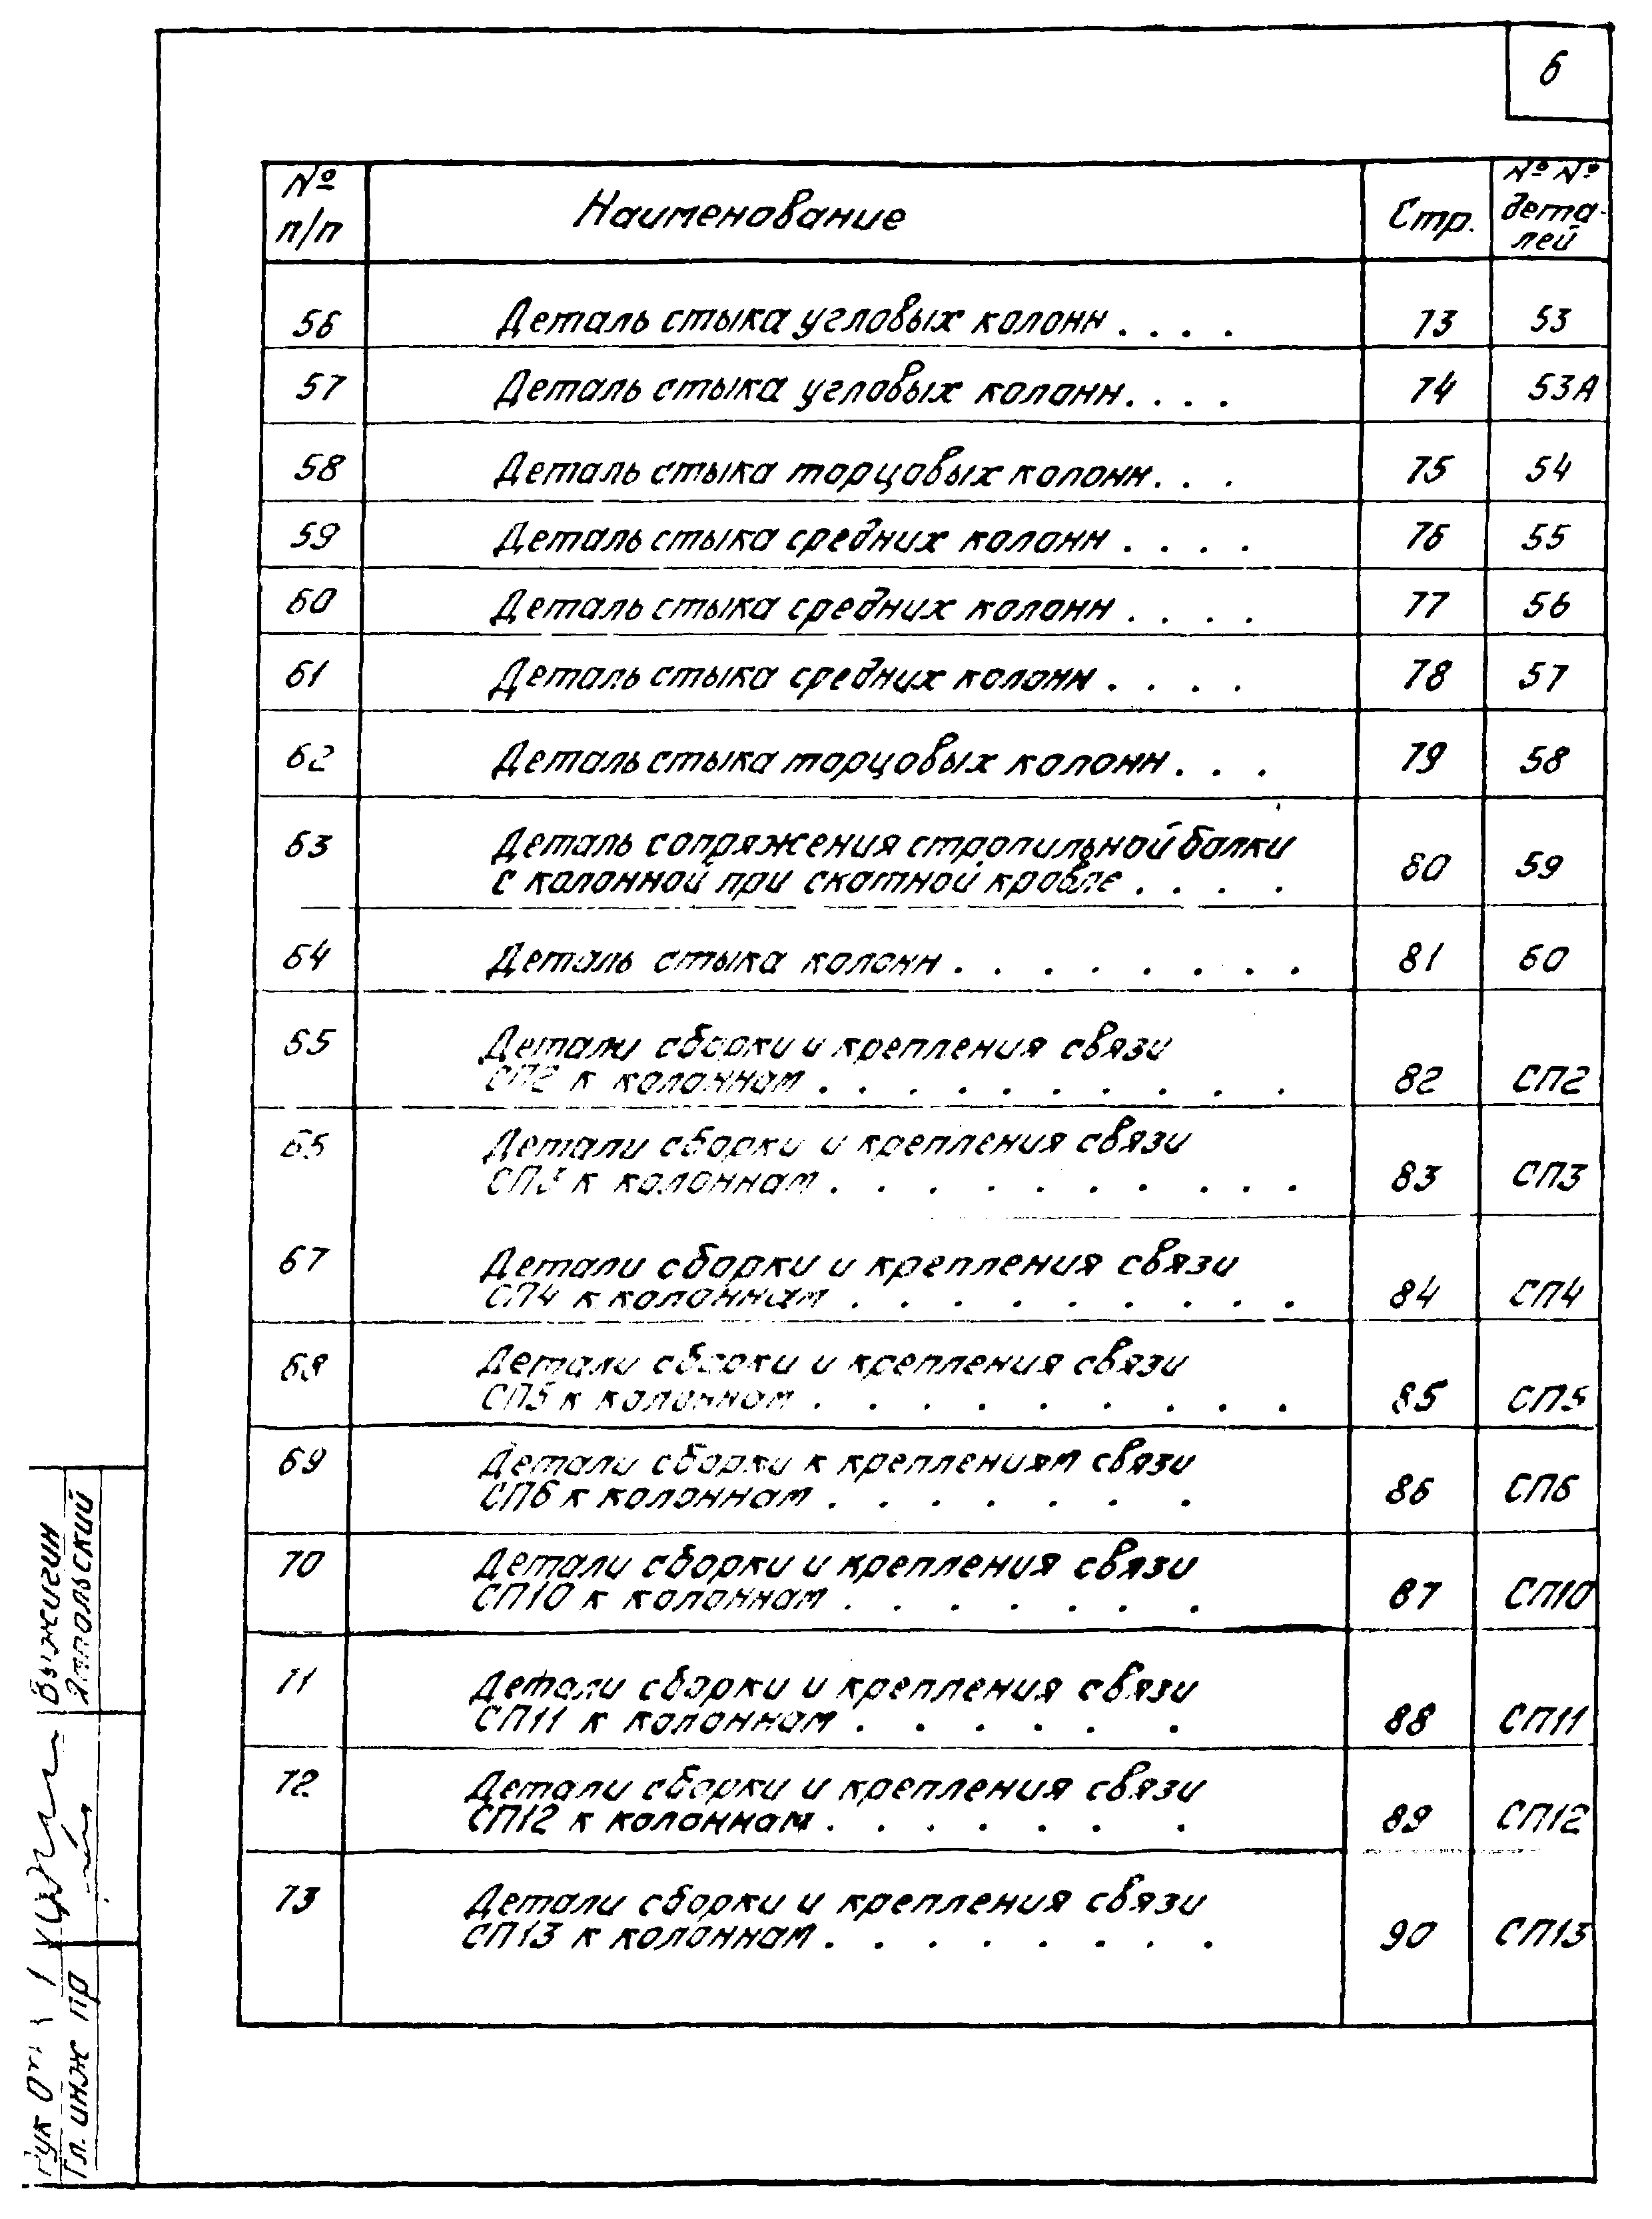 6
№ п/п Наименование Стр. №№ дета-лей
56 Деталь стыка угловых колонн . . . . 73 53
57 Деталь стыка угловых колонн . . . . 74 53А
58 Деталь стыка торцовых колонн . . . 75 54
59 Деталь стыка средних колонн . . . . 76 55
60 Деталь стыка средних колонн . . . . 77 56
61 Деталь стыка средних колонн . . . . 78 57
62 Деталь стыка торцовых колонн . . . 79 58
63 Деталь сопряжения стропильной балки
с колонной при скатной кровле . . . . 80 59
64 Деталь стыка колонн . . . . . . . . 81 60
65 Детали сборки и крепления связи
СП2 к колоннам . . . . . . . . . . 82 СП2
66 Детали сборки и крепления связи
СП3 к колоннам . . . . . . . . . . 83 СП3
67 Детали сборки и крепления связи
СП4 к колоннам . . . . . . . . . 84 СП4
68 Детали сборки и крепления связи
СП5 к колоннам . . . . . . . . . 85 СП5
69 Детали сборки к креплениям связи
СП6 к колоннам . . . . . . . 86 СП6
70 Детали сборки и крепления связи
СП10 к колоннам . . . . . . . 87 СП10
71 Детали сборки и крепления связи
СП11 к колоннам . . . . . . 88 СП11
72 Детали сборки и крепления связи
СП12 к колоннам . . . . . . . 89 СП12
73 Детали сборки и крепления связи
СП13 к колоннам . . . . . . . . 90 СП13
Рук Выжигин
Гл. инж пр